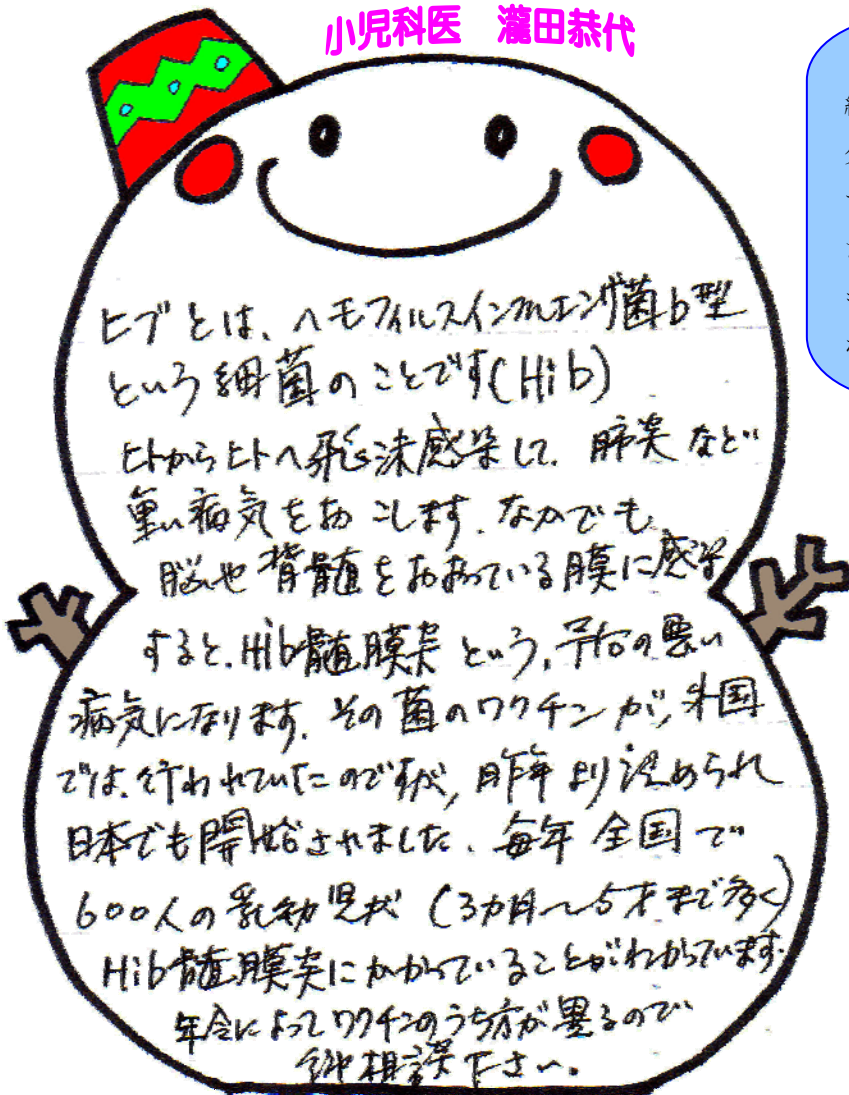 小児科医　瀧田恭代
ヒブとは、ヘモフィルスインフルエンザ菌b型
という細菌のことです(Hib)
ヒトからヒトへ飛沫感染して、肺炎など
重い病気をおこします。なかでも
脳や背髄をおおっている膜に感染
すると、Hib髄膜炎という、予后の悪い
病気になります。その菌のワクチンが、米国
では、行われていたのですが、昨年より認められ
日本でも開始されました。毎年 全国で
600人の乳幼児が (3カ月〜5才まで多く)
Hib髄膜炎にかかっていることがわかっています。
年令によってワクチンのうち方が異るので
御相談下さい。